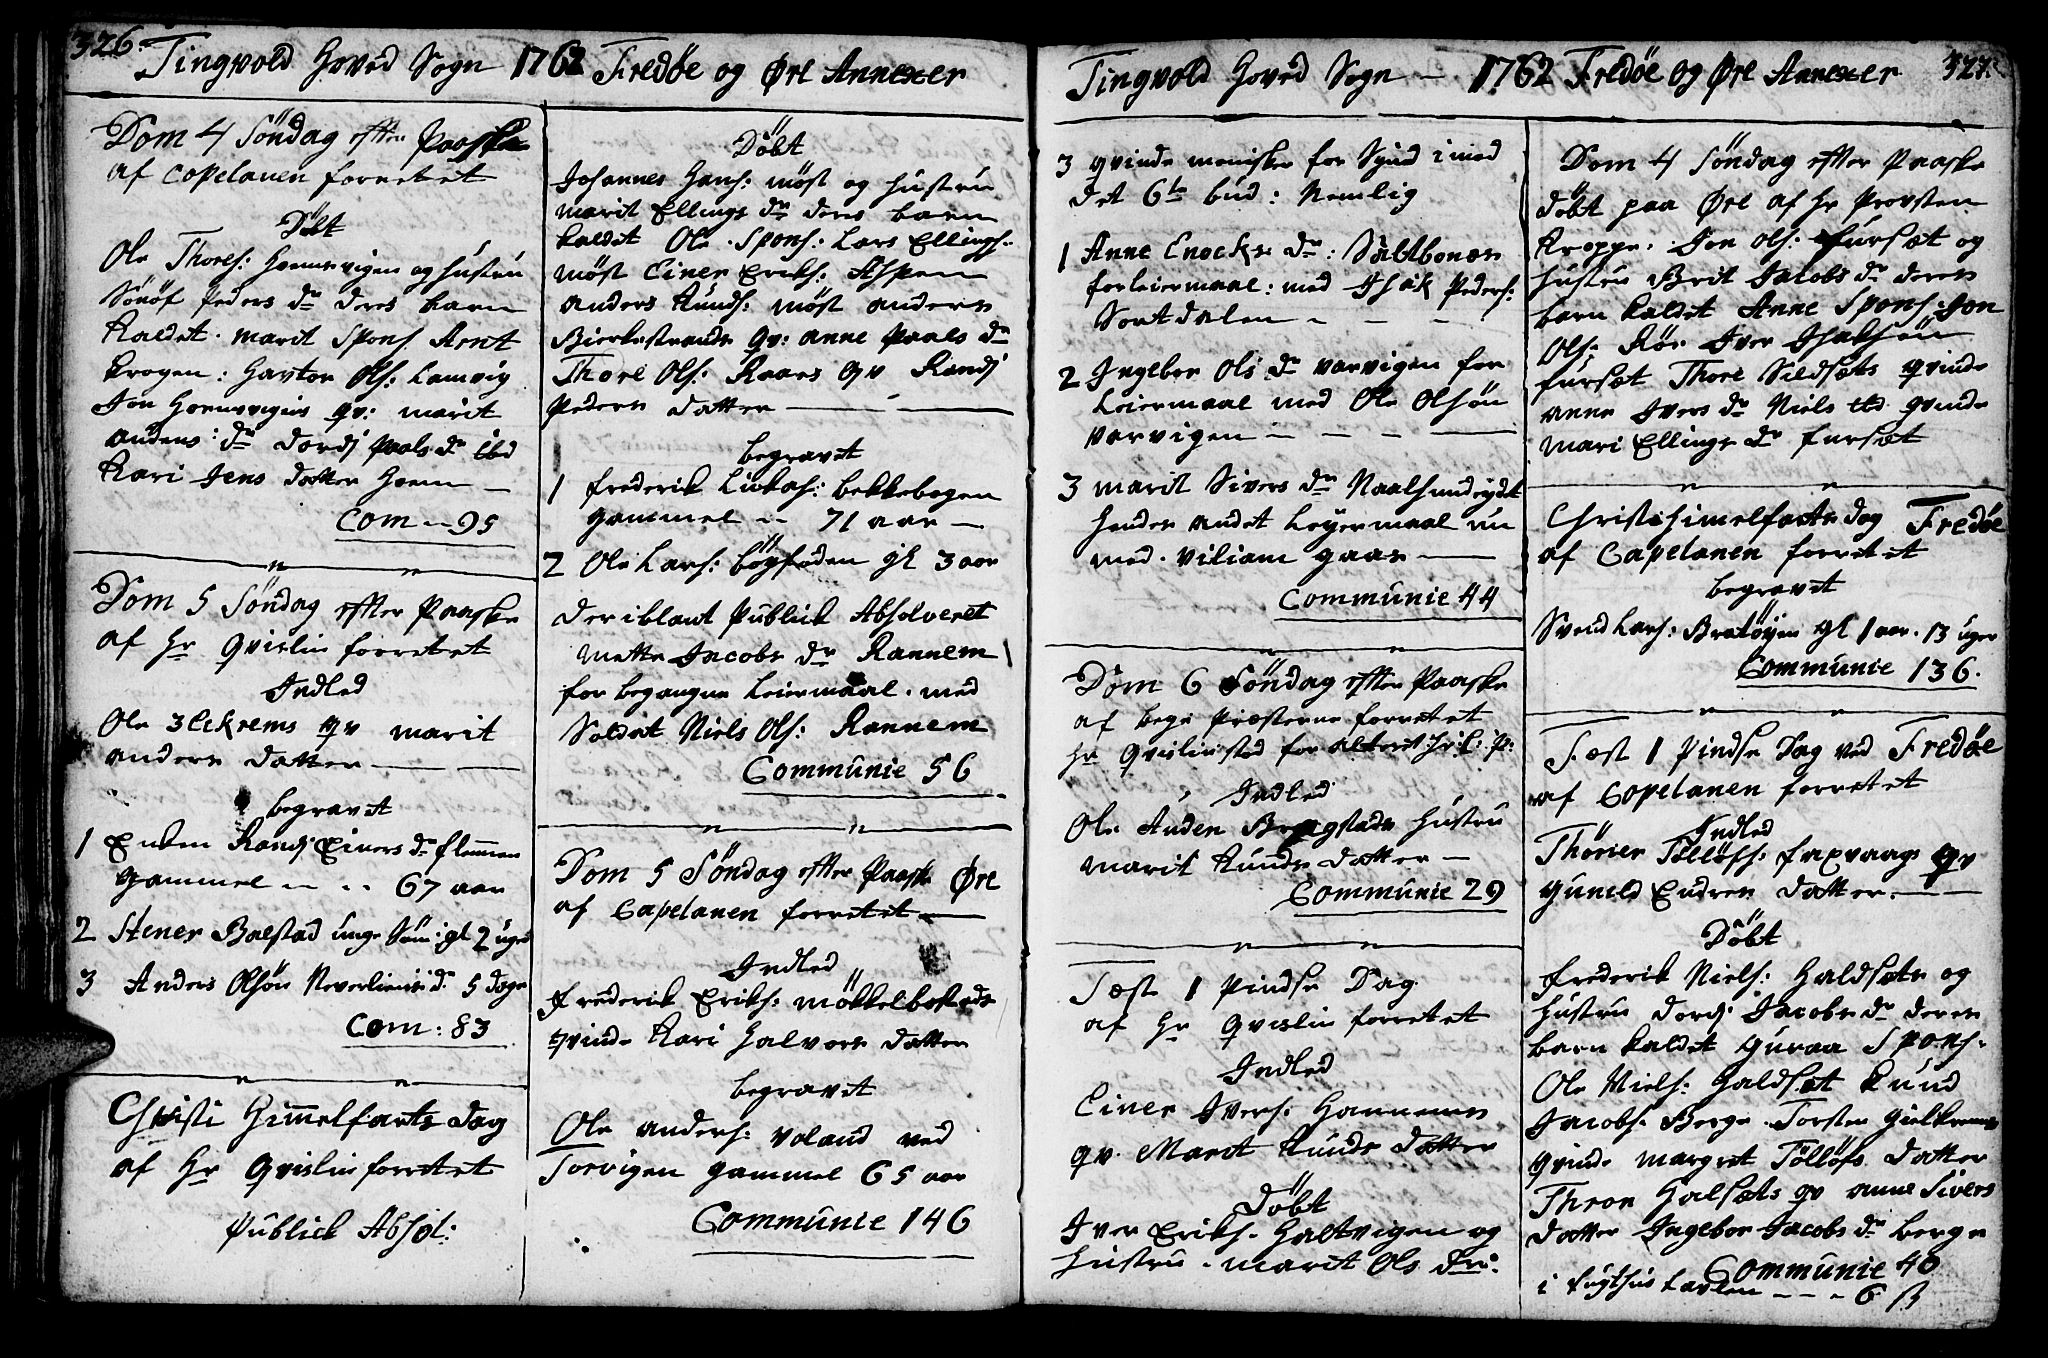 326. Tingvold Hoved Sogn 1762 Fredøe og Øre Annexer
Dom 4 Söndag efter Paaske
af Copelanen forretet
Döbt
Ole Thores: Hemsvigen og hustru
Peders dr deres barn
kaldet. marit Spons Arnt
Krogen: Havtor Ols: Lamvig
Jon Hoemsvigens qv: marit
andens: dr Dordj Paals dr ibd
Kari Jens datter Hoem —
Com -- 95
Dom 5 Söndag efter Paaske
af Hr Qvislin forretet
Indled
Ole Eckrems qv marit
anders datter —
begravet
1 Enken Randj Einers dr flemmen
gammel -- -- 67 aar
2 Stener Balstad unge Sön: gl 2 uger
3 Anders Olsön 5 dage
Com: 83
Christi Himmelfarts dag
af Hr Qvislin forretet
Publick Absol:
Döbt
Johannes Hans: möst og hustru
marit Ellings dr deres barn
kaldet Ole. Spons: Lars Ellings:
möst Einer Eriks: Aspem
anders Knuds: möst anders
Bierkestrands qv: anne Paals dr
Thore Ols: Raars qv Randj
Peders datter —
begravet
1 frederik Lukas: bekkebogen
gammel -- 71 aar —
2 Ole Lars: bögfoden gl 3 aar
der iblant Publick Absolveret
mette Jacobs dr Rannem 1
for begangne Leiermaal. med
Soldat Niels Ols: Rannem
Communie 56
Dom 5 Söndag efter Paaske Øre
af Capelanen forretet —
Indled
frederik Eriks: möckelbosteds
qvinde Kari Halvors datter
begravet
Ole anders: voland ved
Torvigen gammel 65 aar
Communie 146
Tingvold Hoved Sogn — 1762 Fredöe og Øre Annexer 327.
3 qvinde meniske for Synd imod
det 6te bud: Nemlig
1 Anne Enocks dr: Saltbones
for leiermaal: med Isak Peders:
Sortdalen - - -
2 Ingebor Ols dr varvigen for
Leiermaal med Ole Olsön
varvigen - - - —
3 marit Sivers dr Naalsundeydet
hendes andet Leyermaal nu
med. viliam gaas —
Communie 44
Dom 6 Söndag efter Paaske
af begge Præsterne forretet
Hr Qvislin stod for alteret
Indled
Ole Auden Bergstads hustru
marit Knuds datter —
Communie 29
Fæst 1 Pindse Dag
af Hr Qvislin forretet
Indled
Einer Ivers: Hannemes
qv. Marit Knuds datter
Döbt
Iver Eriks. Haltvigen og
hustru. marit Ols dr:
Dom 4 Söndag efter Paaske
döbt paa Øre af Hr Provsten
Kroppe. Jon Ols: fursæt og
hustru Brit Jacobs dr deres
barn kaldet Anne Spons: Jon
Ols: Rör Iver Isaksön
fursæt Thore Sildsæts qvinde
anne Ivers dr Niels ibd qvinde
mari Ellings dr fursæt
Christi himelfarts dag Fredöe
af Capelanen forretet
begravet
Svend Lars: Bratöyen gl 1 aar. 13 uger
Communie 136.
Fæst 1 Pindse Dag ved Fredöe
af Copelanen forretet
Indled
Thörier Tollöfs: faxvaags qv
gunild Endres datter. —
Döbt
frederik Niels: Haldsæts og
hustru Dordj Jacobs dr deres
barn kaldet guraa Spons.
Ole Niels: Haldsæt Knud
Jacobs. Berge. Torsten gielkrems
qvinde margret Tollöfs datter
Thron Halsæts qv anne Sivers
datter Ingebor Jacobs dr berge
Communie 40
i fugthus tavlen - - - 6 ß